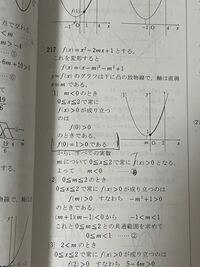 217 f(x)=x²-2mx+1とする。
これを変形すると
f(x)=(x-m)²-m²+1
y=f(x)のグラフは下に凸の放物線で，軸は直線
x=m
[1] m<0のとき
0≦x≦2で常に
f(x)>0が成り立つ
のは
f(0)>0
のときである。
f(0)=1>0である
から，すべての実数
mについて0≦x≦2で常にf(x)>0となる。
よって m<0 ……①
[2] 0≦m≦2のとき
0≦x≦2で常にf(x)>0が成り立つのは
f(m)>0 すなわち -m²+1>0
のときである。
(m+1)(m-1)<0から -1<m<1
これと0≦m≦2との共通範囲を求めて
0≦m<1 ……②
[3] 2<mのとき
0≦x≦2で常にf(x)>0が成り立つのは
f(2)>0 すなわち 5-4m>0